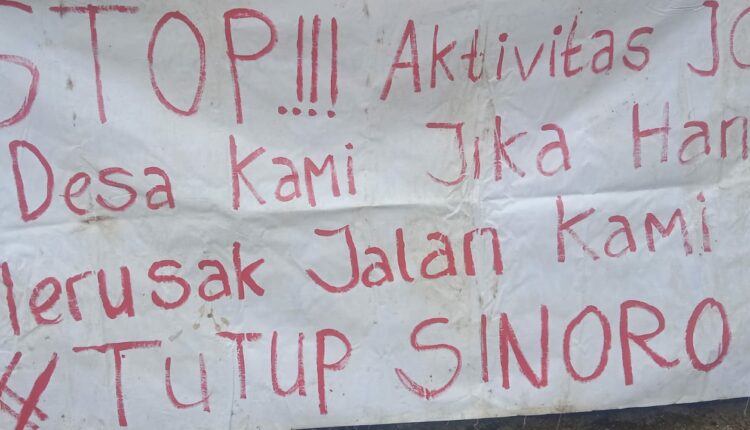 STOP!!! Aktivitas
Desa Kami Jika
Jalan Kami
#TUTUP SINORO